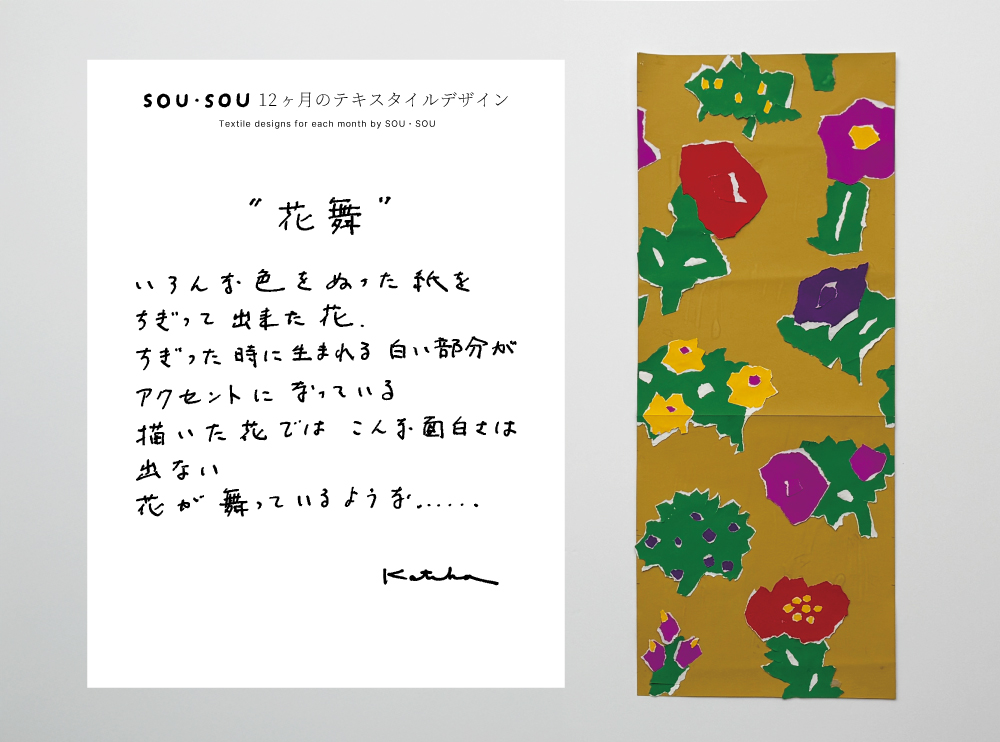 SOU・SOU 12ヶ月のテキスタイルデザイン
Textile designs for each month by SOU・SOU
“花舞”
いろんな色をぬった紙を
ちぎって出来た花.
ちぎった時に生まれる白い部分が
アクセントになっている
描いた花ではこんな面白さは
出ない
花が舞っているような......